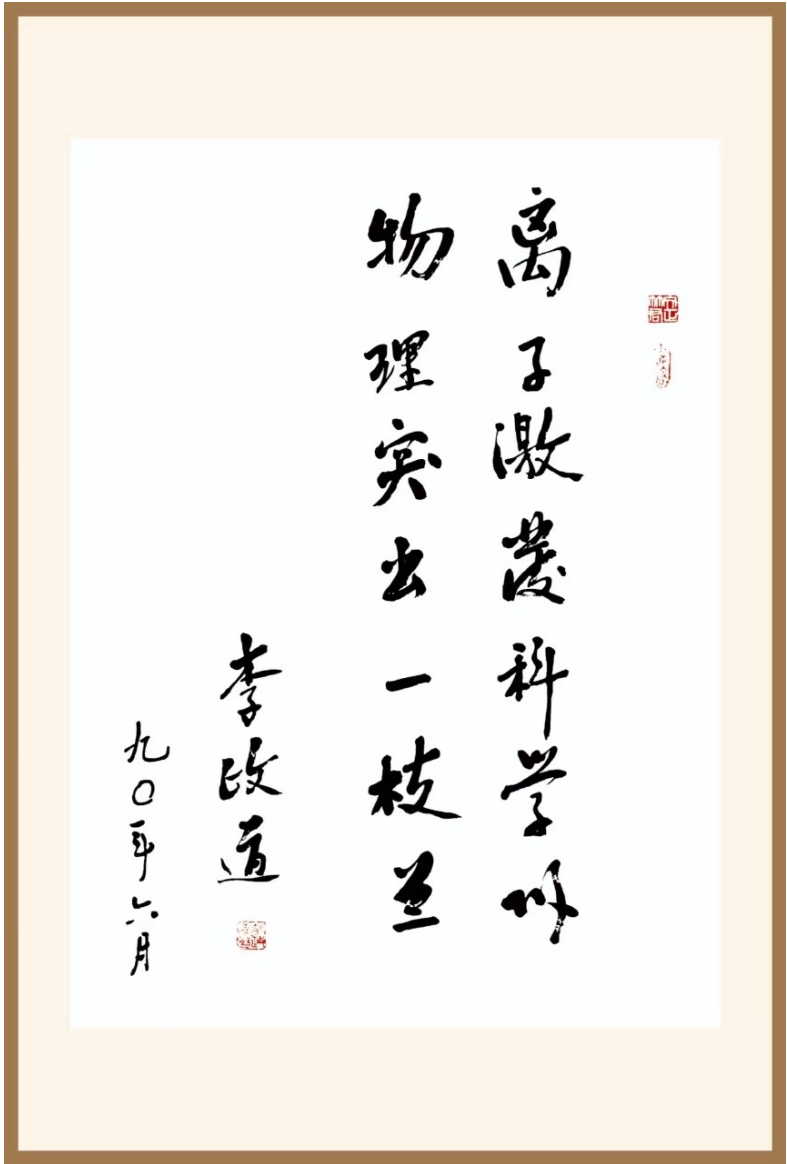 离子激發科学州
物理突出一枝兰
李政道
九〇年六月